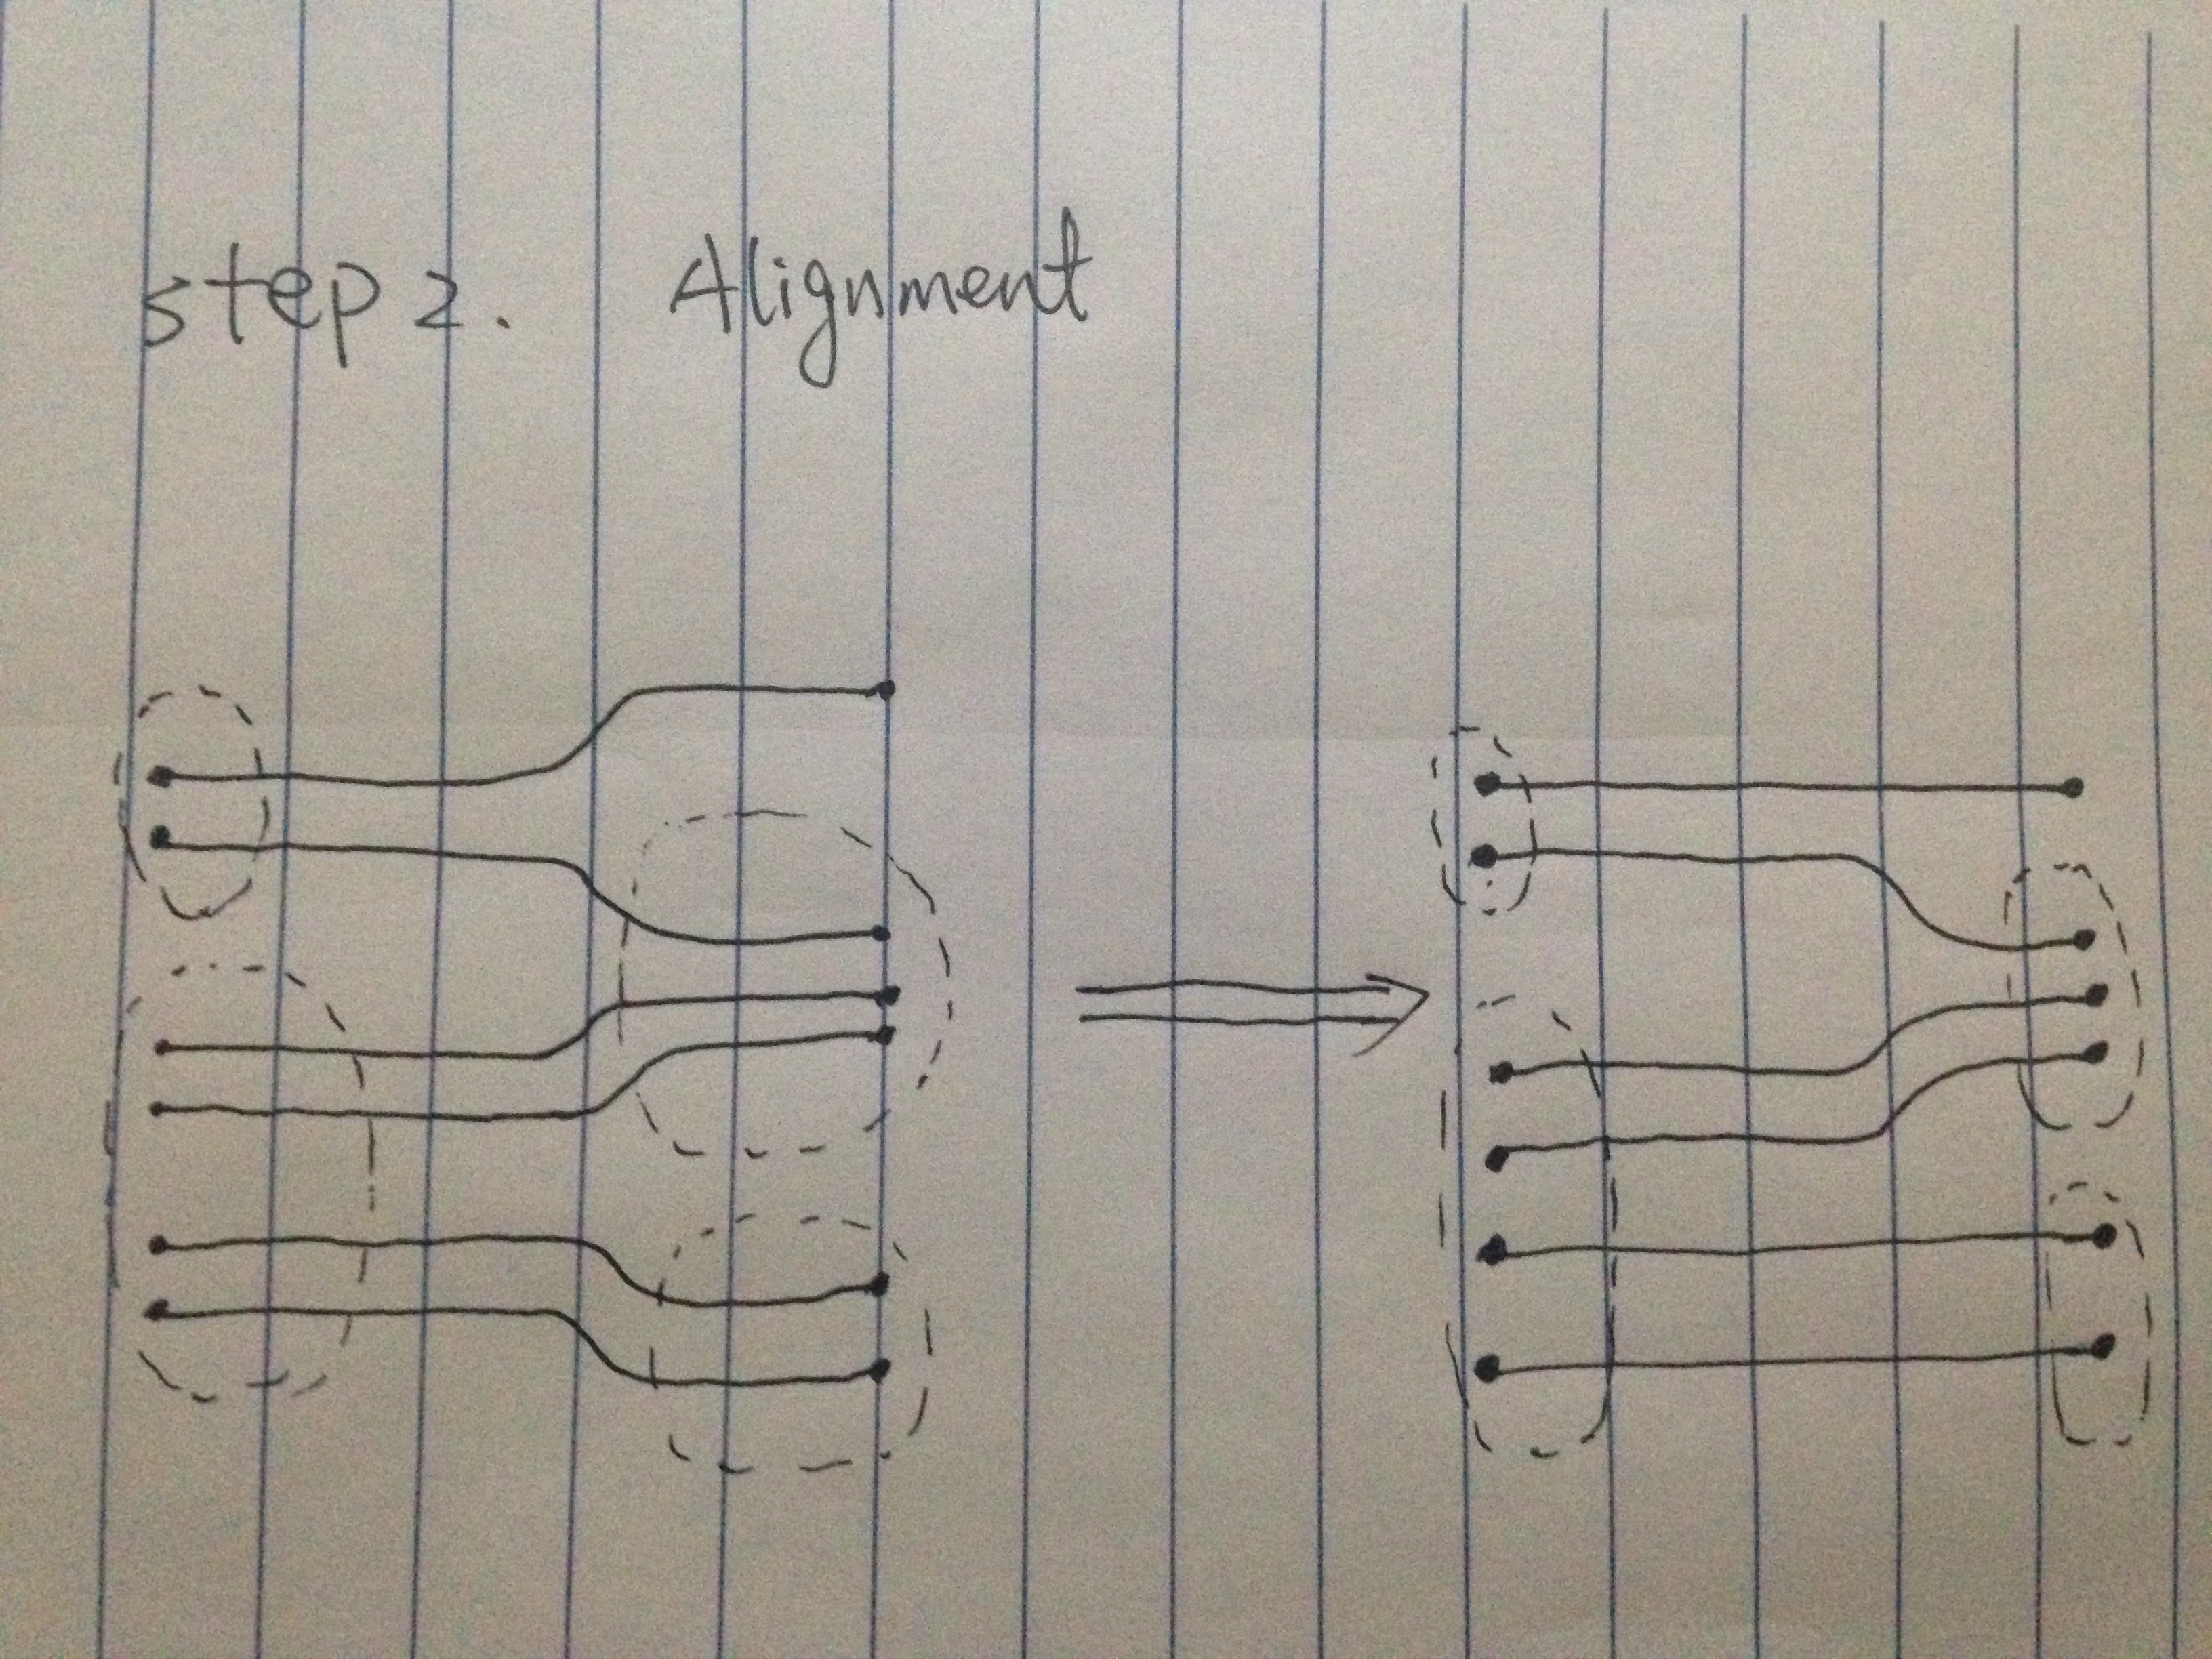 step 2. Alignment